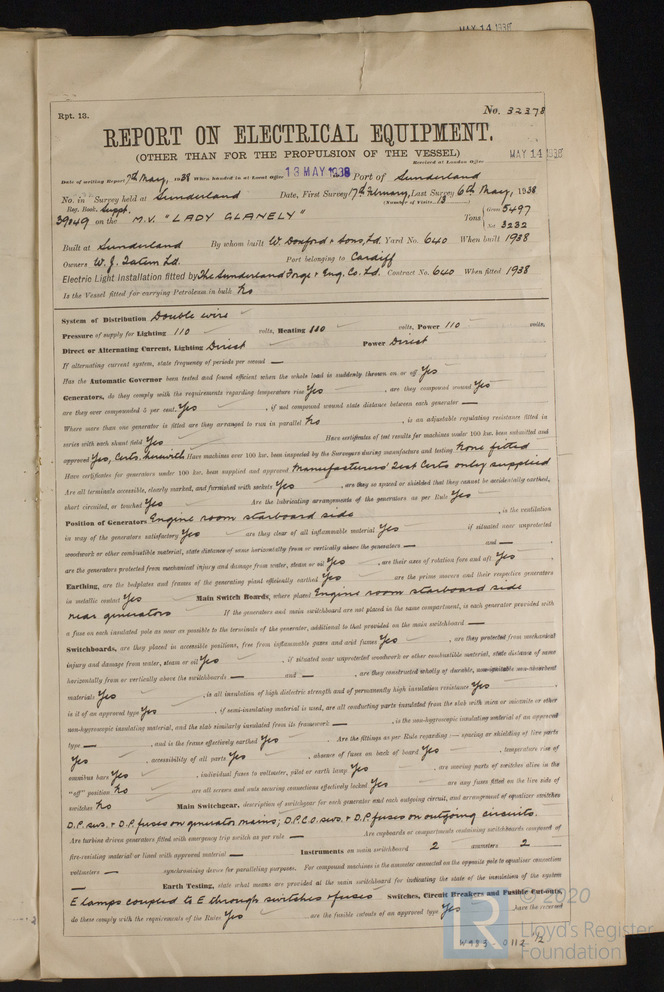 MAY 14 1938
Rpt. 13.
No. 32378
REPORT ON ELECTRICAL EQUIPMENT.
(OTHER THAN FOR THE PROPULSION OF THE VESSEL)
Received at London Office
MAY 14 1938
Date of writing Report 7th May, 1938 When handed in at Local Office 13 MAY 1938 Port of Sunderland
No. in Survey held at Sunderland Date, First Survey 17th February, Last Survey 6th May, 1938
Reg. Book. Suppt. (Number of Visits 13)
39049 on the M.V. "LADY GLANELY" Tons Gross 5497
Net 3232
Built at Sunderland By whom built W. Doxford & Sons, Ld. Yard No. 640 When built 1938
Owners W. J. Tatem Ld. Port belonging to Cardiff
Electric Light Installation fitted by The Sunderland Forge & Eng. Co. Ld. Contract No. 640 When fitted 1938
Is the Vessel fitted for carrying Petroleum in bulk No
System of Distribution Double wire
Pressure of supply for Lighting 110 volts, Heating volts, Power 110 volts.
Direct or Alternating Current, Lighting Direct Power Direct
If alternating current system, state frequency of periods per second —
Has the Automatic Governor been tested and found efficient when the whole load is suddenly thrown on or off Yes
Generators, do they comply with the requirements regarding temperature rise Yes, are they compound wound Yes
are they over compounded 5 per cent. Yes, if not compound wound state distance between each generator —
Where more than one generator is fitted are they arranged to run in parallel No, is an adjustable regulating resistance fitted in
series with each shunt field Yes Have certificates of test results for machines under 100 kw. been submitted and
approved Yes, Certs. herewith Have machines over 100 kw. been inspected by the Surveyors during manufacture and testing None fitted
Have certificates for generators under 100 kw. been supplied and approved Manufacturers' Test Certs only supplied
Are all terminals accessible, clearly marked, and furnished with sockets Yes, are they so spaced or shielded that they cannot be accidentally earthed,
short circuited, or touched Yes Are the lubricating arrangements of the generators as per Rule Yes
Position of Generators Engine room starboard side, is the ventilation
in way of the generators satisfactory Yes are they clear of all inflammable material Yes if situated near unprotected
woodwork or other combustible material, state distance of same horizontally from or vertically above the generators — and —
are the generators protected from mechanical injury and damage from water, steam or oil Yes, are their axes of rotation fore and aft Yes
Earthing, are the bedplates and frames of the generating plant efficiently earthed Yes are the prime movers and their respective generators
in metallic contact Yes Main Switch Boards, where placed Engine room starboard side
near generators If the generators and main switchboard are not placed in the same compartment, is each generator provided with
a fuse on each insulated pole as near as possible to the terminals of the generator, additional to that provided on the main switchboard —
Switchboards, are they placed in accessible positions, free from inflammable gases and acid fumes Yes, are they protected from mechanical
injury and damage from water, steam or oil Yes, if situated near unprotected woodwork or other combustible material, state distance of same
horizontally from or vertically above the switchboards — and —, are they constructed wholly of durable, non-ignitable non-absorbent
materials Yes, is all insulation of high dielectric strength and of permanently high insulation resistance Yes
is it of an approved type Yes, if semi-insulating material is used, are all conducting parts insulated from the slab with mica or micanite or other
non-hygroscopic insulating material, and the slab similarly insulated from its framework —, is the non-hygroscopic insulating material of an approved
type —, and is the frame effectively earthed Yes Are the fittings as per Rule regarding:— spacing or shielding of live parts
Yes, accessibility of all parts Yes, absence of fuses on back of board Yes, temperature rise of
omnibus bars Yes, individual fuses to voltmeter, pilot or earth lamp Yes, are moving parts of switches alive in the
"off" position No, are all screws and nuts securing connections effectively locked Yes are any fuses fitted on the live side of
switches No Main Switchgear, description of switchgear for each generator and each outgoing circuit, and arrangement of equaliser switches
D.P. sws. & D.P. fuses on generator mains; D.P.C.O. sws. & D.P. fuses on outgoing circuits.
Are turbine driven generators fitted with emergency trip switch as per rule — Are cupboards or compartments containing switchboards composed of
fire-resisting material or lined with approved material — Instruments on main switchboard 2 ammeters 2
voltmeters — synchronising device for paralleling purposes. For compound machines is the ammeter connected on the opposite pole to equaliser connection
— Earth Testing, state what means are provided at the main switchboard for indicating the state of the insulation of the system
E lamps coupled to E through switches & fuses Switches, Circuit Breakers and Fusible Cut-outs,
do these comply with the requirements of the Rules Yes, are the fusible cutouts of an approved type Yes have the reversed
W993-0112 1/2
© 2020
LR
Lloyd's Register
Foundation